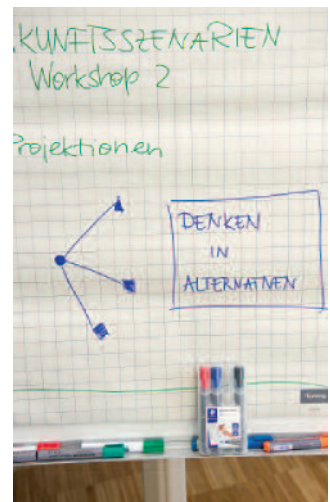 KUNFTSSZENARIEN
Workshop 2
Projektionen
DENKEN
IN
ALTERNATIVEN